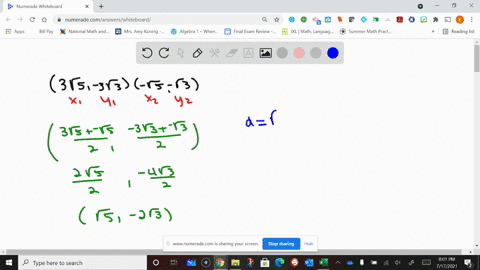 Numerade Whiteboard
numerade.com/answers/whiteboard/
Apps
Bill Pay
National Math and...
Mrs. Amy Koning -...
Algebra 1 - Whenn...
Final Exam Review -...
IXL | Math, Languag...
Summer Math Practi...
Reading list
(3√5, -3√3) (-√5, -√3)
x₁ y₁ x₂ y₂
(3√5 + -√5 / 2, -3√3 + -√3 / 2)
d = √
2√5 / 2, -4√3 / 2
(√5, -2√3)
www.numerade.com is sharing your screen.
Stop sharing
Hide
Type here to search
8:01 PM
7/17/2021